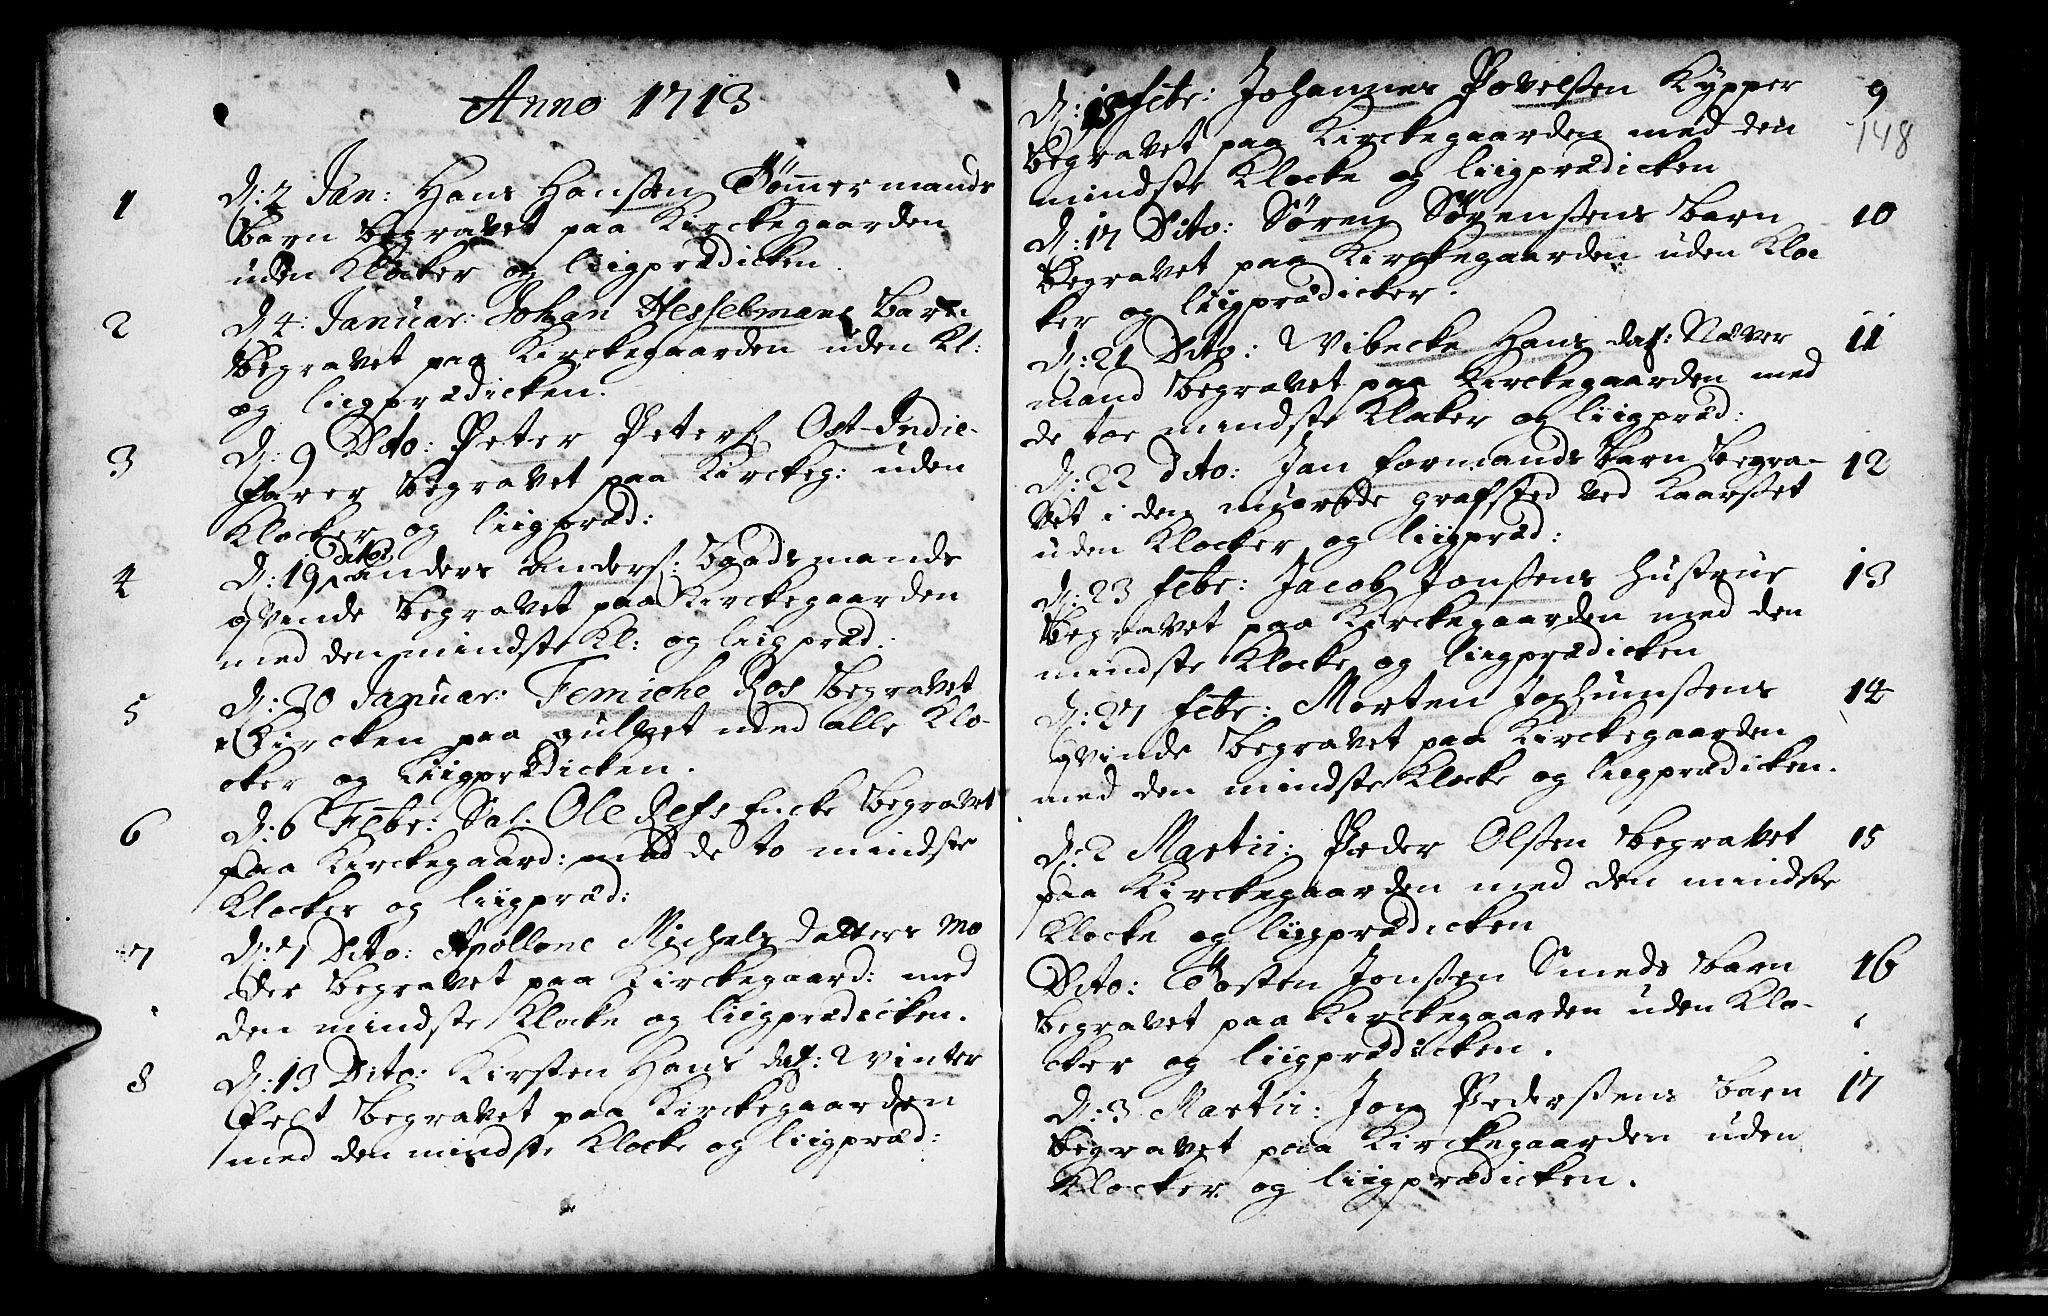 Anno 1713
1 D: 2 Jan: Hans Hanßen Tömermands
Barn begravet paa Kirckegaarden
uden Klocker og liigprædicken.
2 D: 4: Januar: Johan Hesselmans Barn
begravet paa Kirckegaarden uden Kl:
og liigprædicken.
3 D: 9 Dito: Peter Peters: Ost-Indie-
farer begravet paa Kirckeg: uden
Klocker og liigpræd:
4 D: 19 Dito Anders Anders: Baadsmands
qvinde begravet paa Kirckegaarden
med den mindste Kl: og liigpræd:
5 D: 20 Januar: Femiche Ros begravet
i Kircken paa gulvet med alle Klo-
cker og Liigprædicken.
6 D: 6 Febr: Sal. Ole Refs Encke begravet
paa Kirckegaard: med de to mindste
Klocker og liigpræd:
7 D: 7 Dito: Apollone Michels datters Mo
der begravet paa Kirckegaard: med
den mindste Klocke og liigprædicken.
8 D: 13 Dito: Kirsten Hans dat: Winter
felt begravet paa Kirckegaarden
med den mindste Klocke og liigpræd:
D: 13 Febr: Johannes Povelßen Kypper 9
begravet paa Kirckegaarden med den 148
mindste Klocke og liigprædicken
D: 17 Dito: Sören Sörenßens Barn 10
begravet paa Kirckegaarden uden Kloc
ker og liigprædicker.
D: 21 Dito: Vibecke Hans dat: Næver 11
mand begravet paa Kirckegaarden med
de toe mindste Klocker og liigpræd:
D: 22 Dito: Jan Formands Barn begra- 12
vet i den murede grafsted ved Kaarßet
uden Klocker og liigpræd:
D: 23 Febr: Jacob Jonßens Hustrue 13
begravet paa Kirckegaarden med den
mindste Klocke og liigprædicken
D: 27 Febr: Morten Jochumßens 14
qvinde begravet paa Kirckegaarden
med den mindste Klocke og liigprædicken.
D: 2 Martii: Peder Olßen begravet 15
paa Kirckegaarden med den mindste
Klocke og liigprædicken
Dito: Tosten Jonßen Smeds Barn 16
begravet paa Kirckegaarden uden Klo-
cker og liigprædicken.
D: 3 Martii: Jon Pederßens Barn 17
begravet paa Kirckegaarden uden
Klocker og liigprædicken.